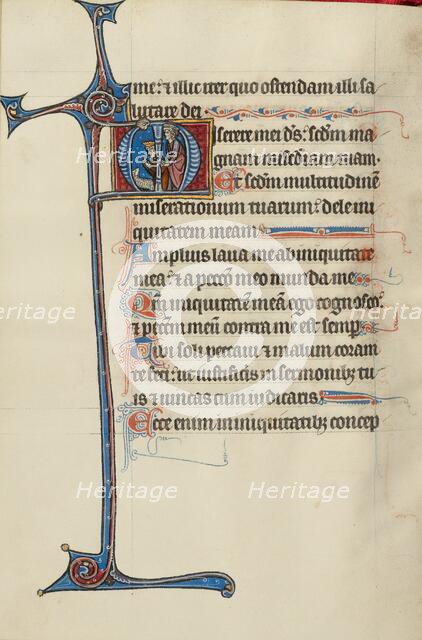 me: & illic iter quo ostendam illi sa
lutare dei.
Miserere mei d̅s̅: secdm̅ ma
gnam mis̅diam tuam.
Et secdm̅ multitudinē
miserationum tuarum: dele ini
quitatem meam.
Amplius laua me ab iniquitate
mea: & a pecc̅o meo munda me.
Qm̅ iniquitatē meā ego cognosco:
& pecc̅m meū contra me est semp̅.
Tibi soli peccaui & malum coram
te feci: ut iustificeris in sermonibȝ tu
is & uincas cum iudicaris.
Ecce enim in iniquitatibȝ concep
Heritage
Heritage
Heritage
Heritage
Heritage
Heritage